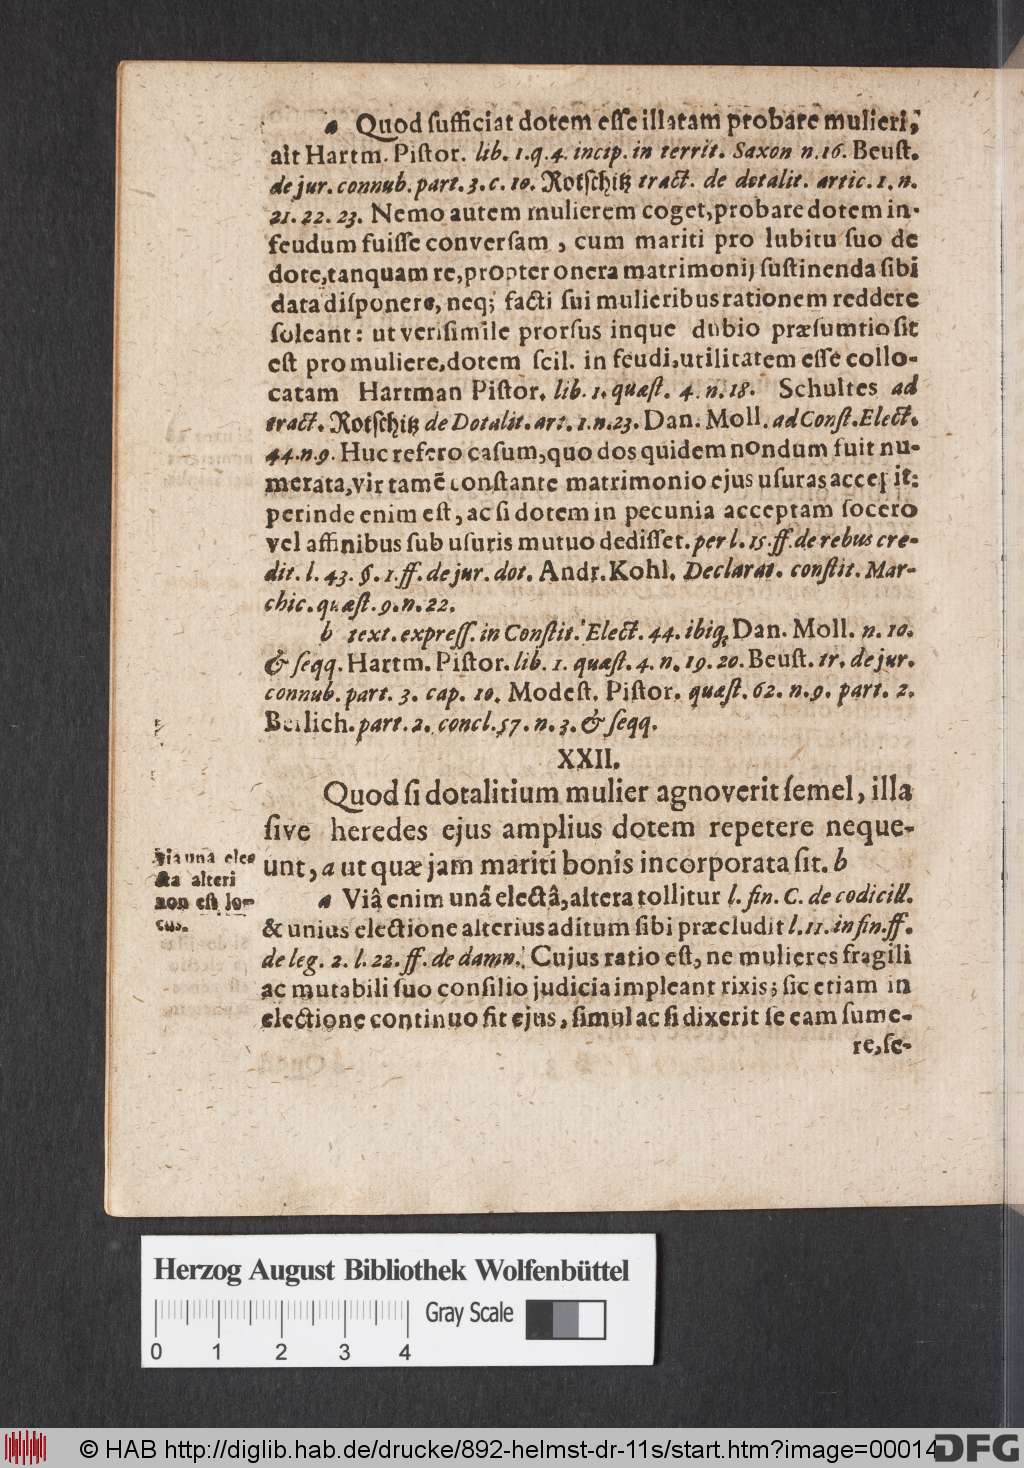 a Quod ſufficiat dotem eſſe illatam probare mulieri,
ait Hartm. Piſtor. lib. 1. q. 4. incip. in territ. Saxon n. 16. Beuſt.
de jur. connub. part. 3. c. 10. Rotſchitz tract. de dotalit. artic. 1. n.
21. 22. 23. Nemo autem mulierem coget, probare dotem in-
feudum fuiſſe converſam, cum mariti pro lubitu ſuo de
dote, tanquam re, propter onera matrimonij ſuſtinenda ſibi
data diſponere, neq; facti ſui mulieribus rationem reddere
ſoleant: ut veriſimile prorſus inque dubio præſumtio ſit
eſt pro muliere, dotem ſcil. in feudi, utilitatem eſſe collo-
catam Hartman Piſtor. lib. 1. quæſt. 4. n. 18. Schultes ad
tract. Rotſchitz de Dotalit. art. 1. n. 23. Dan. Moll. ad Conſt. Elect.
44. n. 9. Huc refero caſum, quo dos quidem nondum fuit nu-
merata, vir tamē conſtante matrimonio ejus uſuras accepit:
perinde enim eſt, ac ſi dotem in pecunia acceptam ſocero
vel affinibus ſub uſuris mutuo dediſſet. per l. 15. ff. de rebus cre-
dit. l. 43. §. 1. ff. de jur. dot. Andr. Kohl. Declarat. conſtit. Mar-
chic. quæſt. 9. n. 22.
b text. expreſſ. in Conſtit. Elect. 44. ibiq; Dan. Moll. n. 10.
& ſeqq. Hartm. Piſtor. lib. 1. quæſt. 4. n. 19. 20. Beuſt. tr. de jur.
connub. part. 3. cap. 10. Modeſt. Piſtor. quæſt. 62. n. 9. part. 2.
Berlich. part. 2. concl. 57. n. 3. & ſeqq.
XXII.
Quod ſi dotalitium mulier agnoverit ſemel, illa
ſive heredes ejus amplius dotem repetere neque-
unt, a ut quæ jam mariti bonis incorporata ſit. b
Via unâ ele-
cta alteri
non eſt lo-
cus.
a Viâ enim unâ electâ, altera tollitur l. fin. C. de codicill.
& unius electione alterius aditum ſibi præcludit l. 11. in fin. ff.
de leg. 2. l. 22. ff. de damn. Cujus ratio eſt, ne mulieres fragili
ac mutabili ſuo conſilio judicia impleant rixis; ſic etiam in
electione continuo fit ejus, ſimul ac ſi dixerit ſe eam ſume-
re, ſe-
Herzog August Bibliothek Wolfenbüttel
Gray Scale
0 1 2 3 4
© HAB http://diglib.hab.de/drucke/892-helmst-dr-11s/start.htm?image=00014
DFG